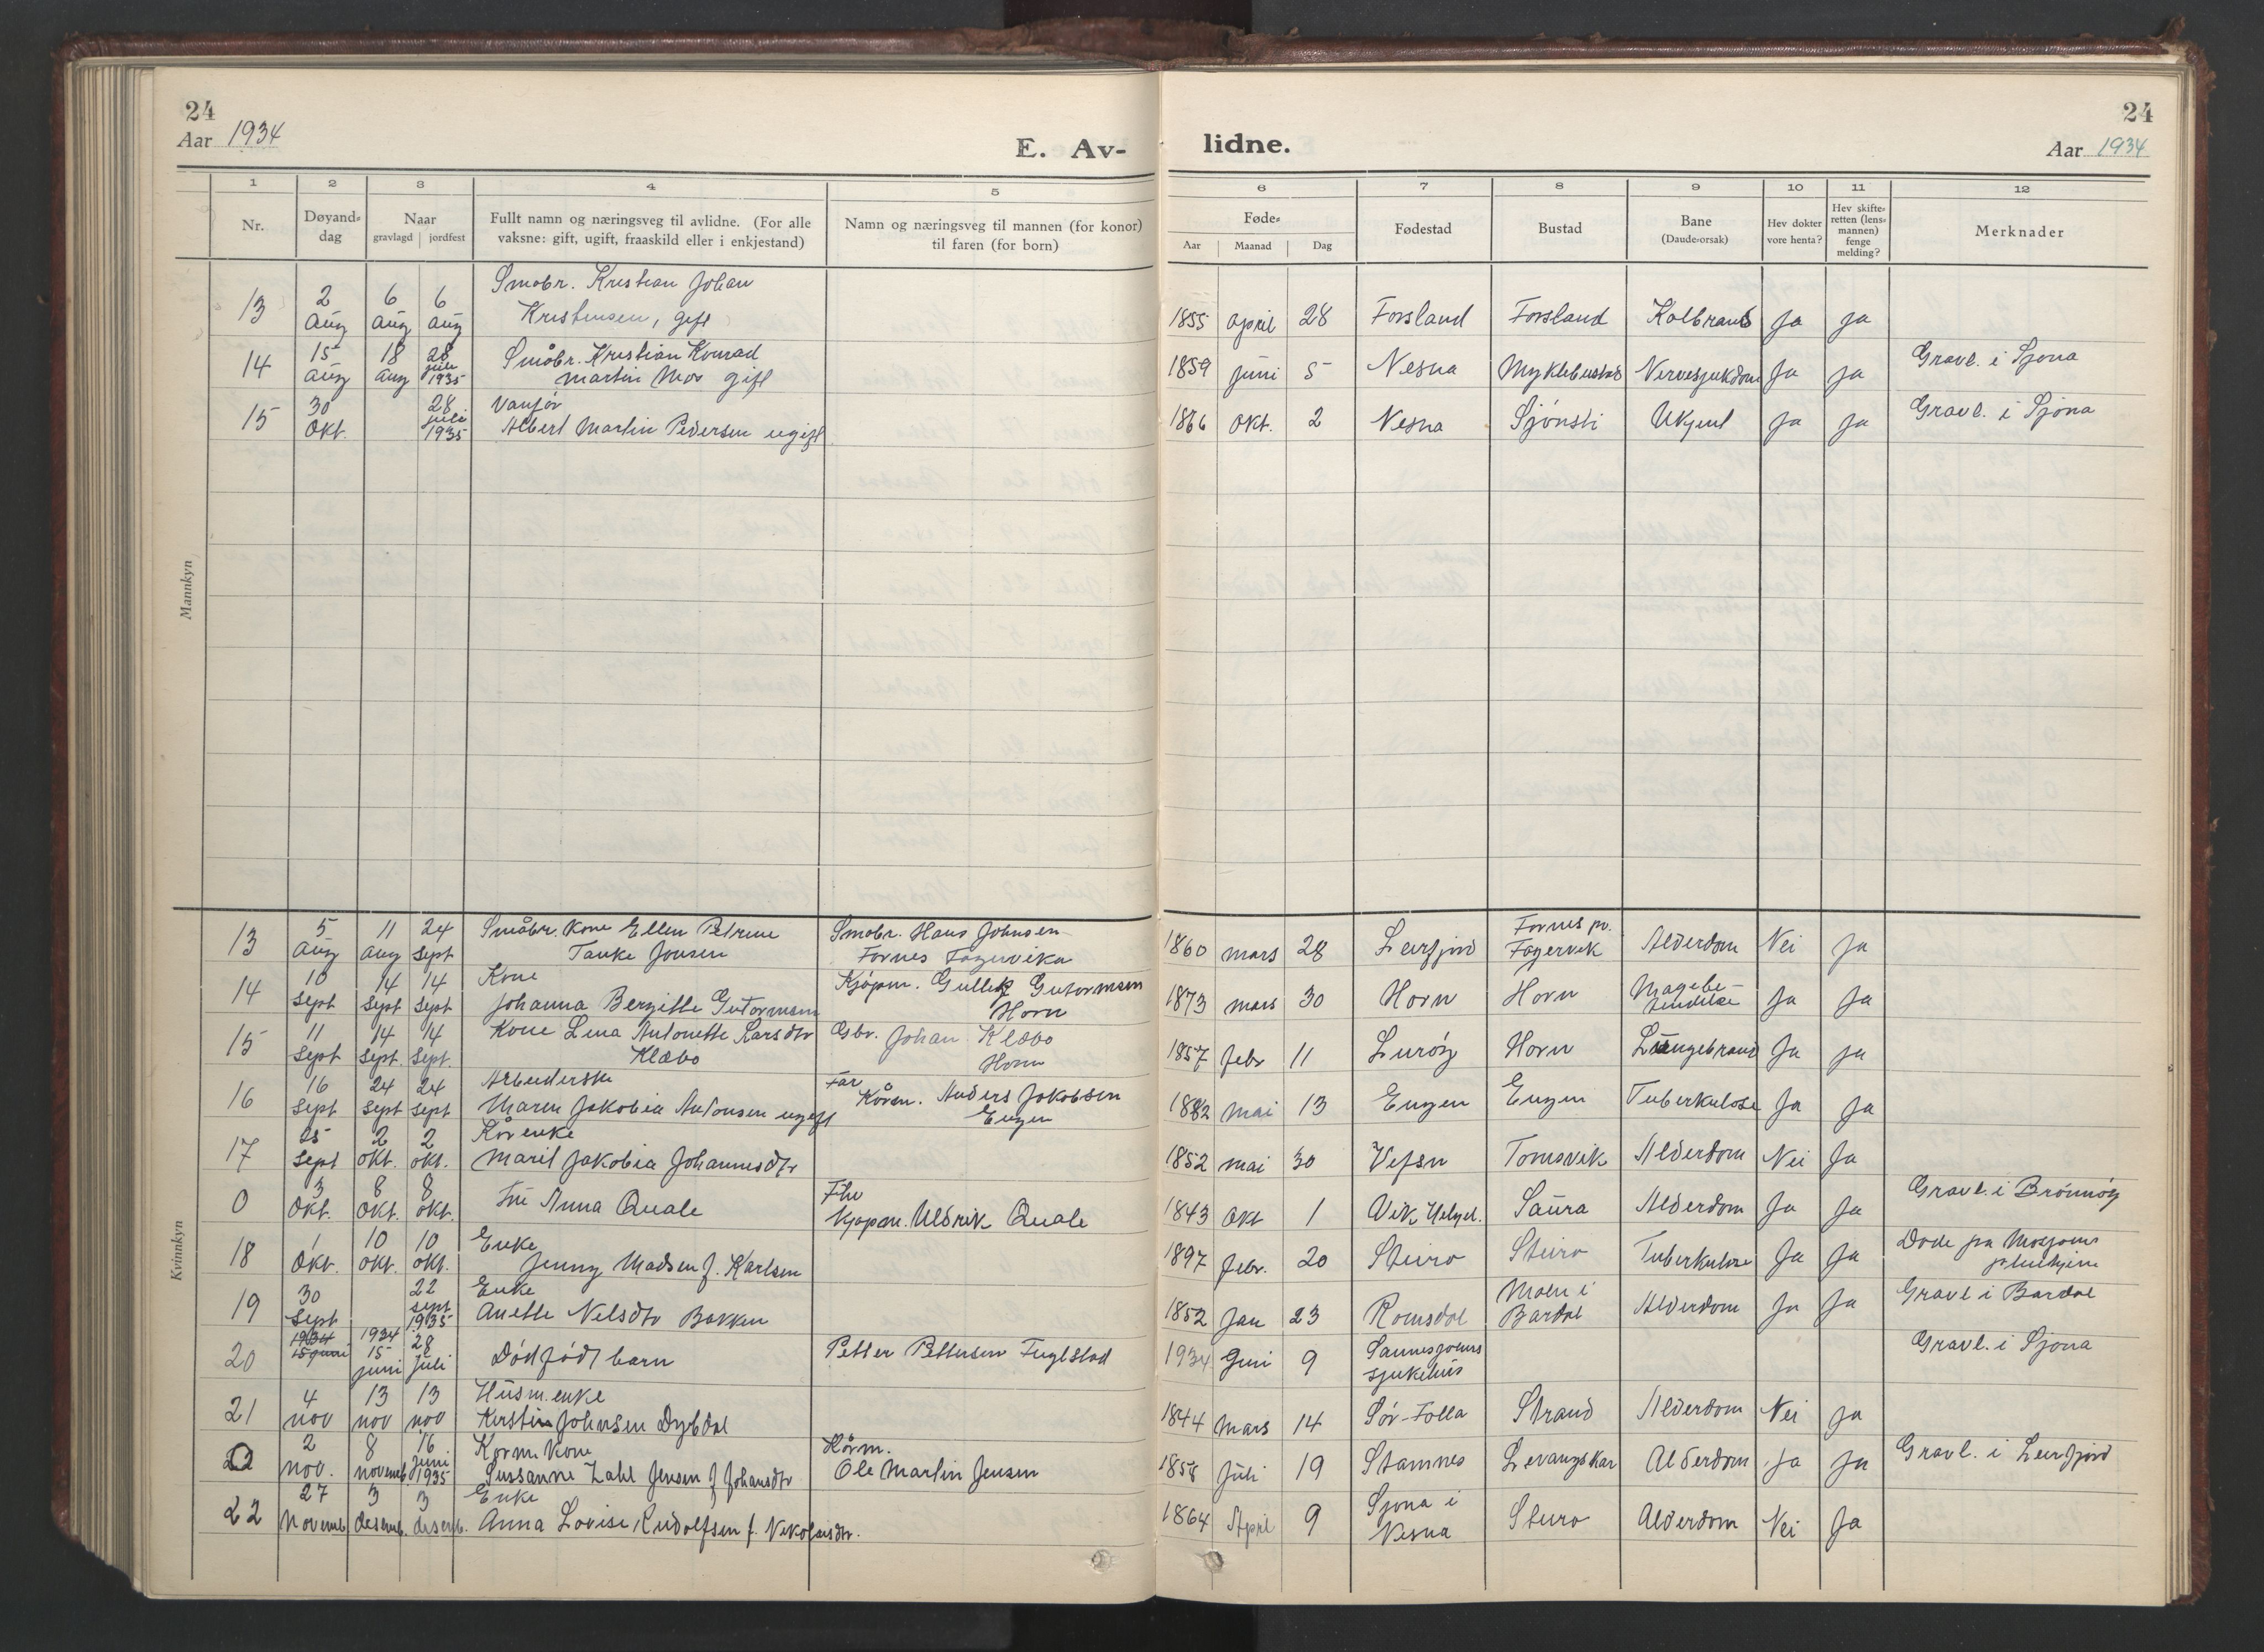 24
Aar 1934
E. Av-
lidne.
24
Aar 1934
1 2 3 4 5 6 7 8 9 10 11 12
Nr.
Døyand-dag
Naar
gravlagd | jordfest
Fullt namn og næringsveg til avlidne. (For alle
vaksne: gift, ugift, fraaskild eller i enkjestand)
Namn og næringsveg til mannen (for konor)
til faren (for born)
Føde-
Aar Maanad Dag
Fødestad
Bustad
Bane
(Daude-orsak)
Hev dokter
vore henta?
Hev skifte-
retten (lens-
mannen)
fenge
melding?
Merknader
Mannkyn
13 2 aug 6 aug 6 aug Småbr. Kristian Johan
Kristensen, gift 1855 april 28 Forsland Forsland Kolbrand Ja Ja
14 15 aug 18 aug 28 juli 1935 Småbr. Kristian Konrad
Martin Mos gift 1859 juni 5 Nesna Myklebustad Nervesjukdom Ja Ja Gravl. i Sjona
15 30 okt. 28 juli 1935 Vanfør
Albert Martin Pedersen ugift 1866 okt. 2 Nesna Sjönsti Ukjent Ja Ja Gravl. i Sjona
Kvinnkyn
13 5 aug 11 aug 24 sept Småbr. kone Ellen Petrine
Tanke Jonsen Småbr. Hans Johnsen
Fornes Fagervika 1860 mars 28 Leirfjord Fornes pr.
Fagervik Alderdom Nei Ja
14 10 sept 14 sept 14 sept Kone
Johanna Bergitte Gutormsen Kjøpm. Gullik Gutormsen
Horn 1873 mars 30 Horn Horn Magebe-
tendelse Ja Ja
15 11 sept 14 sept. 14 sept. Kone Lina Antonette Larsdtr
Klæbo Gbr. Johan Klæbo
Horn 1857 febr 11 Lurøy Horn Lungebrand Ja Ja
16 16 sept 24 sept 24 sept Arbeiderske
Maren Jakobia Antonsen ugift Far
Kårm. Anders Jakobsen
Engen 1882 mai 13 Engen Engen Tuberkulose Ja Ja
17 25 sept 2 okt. 2 okt. Kårenke
Marit Jakobia Johannesdtr 1852 mai 30 Vefsn Tomsvik Alderdom Nei Ja
0 3 okt. 8 okt. 8 okt. Fru Anna Quale Fhv
Kjøpm. Uldrik Quale 1843 okt 1 Vik Helgel. Saura Alderdom Ja Ja Gravl. i Brönnöy
18 1 okt. 10 okt. 10 okt. Enke
Jenny Madsen f. Karlsen 1897 febr. 20 Steiro Steiro Tuberkulose Ja Ja Døde på Mosjøens
pleiehjem
19 30 sept 22 sept 1935 Enke
Anette Nelsdtr Bakken 1852 Jan 23 Romsdal Moen i
Bardal Alderdom Ja Ja Gravl i Bardal
20 1934 15 juni 1934 15 juni 28 juli Dödfödt barn Petter Pettersen Fuglstad 1934 Juni 9 Sannesjoens
sjukehus Gravl. i Sjona
21 4 nov 13 nov 13 nov Husm. enke
Kirstin Johnsen Dybdal 1844 mars 14 Sör-Folla Strand Alderdom Nei Ja
22 2 nov. 8 novemb. 16 juni 1935 Korm. kone
Sussanne Zahl Jensen f Johansdtr Kårm.
Ole Martin Jensen 1858 Juli 19 Stamnes Levangskar Alderdom Ja Ja Gravl. i Leirfjord
22 27 Novemb 3 desemb. 3 desemb. Enke
Anna Lovise Rudolfsen f. Nikolaisdtr. 1864 April 9 Sjona i
Nesna Steiro Alderdom Nei Ja